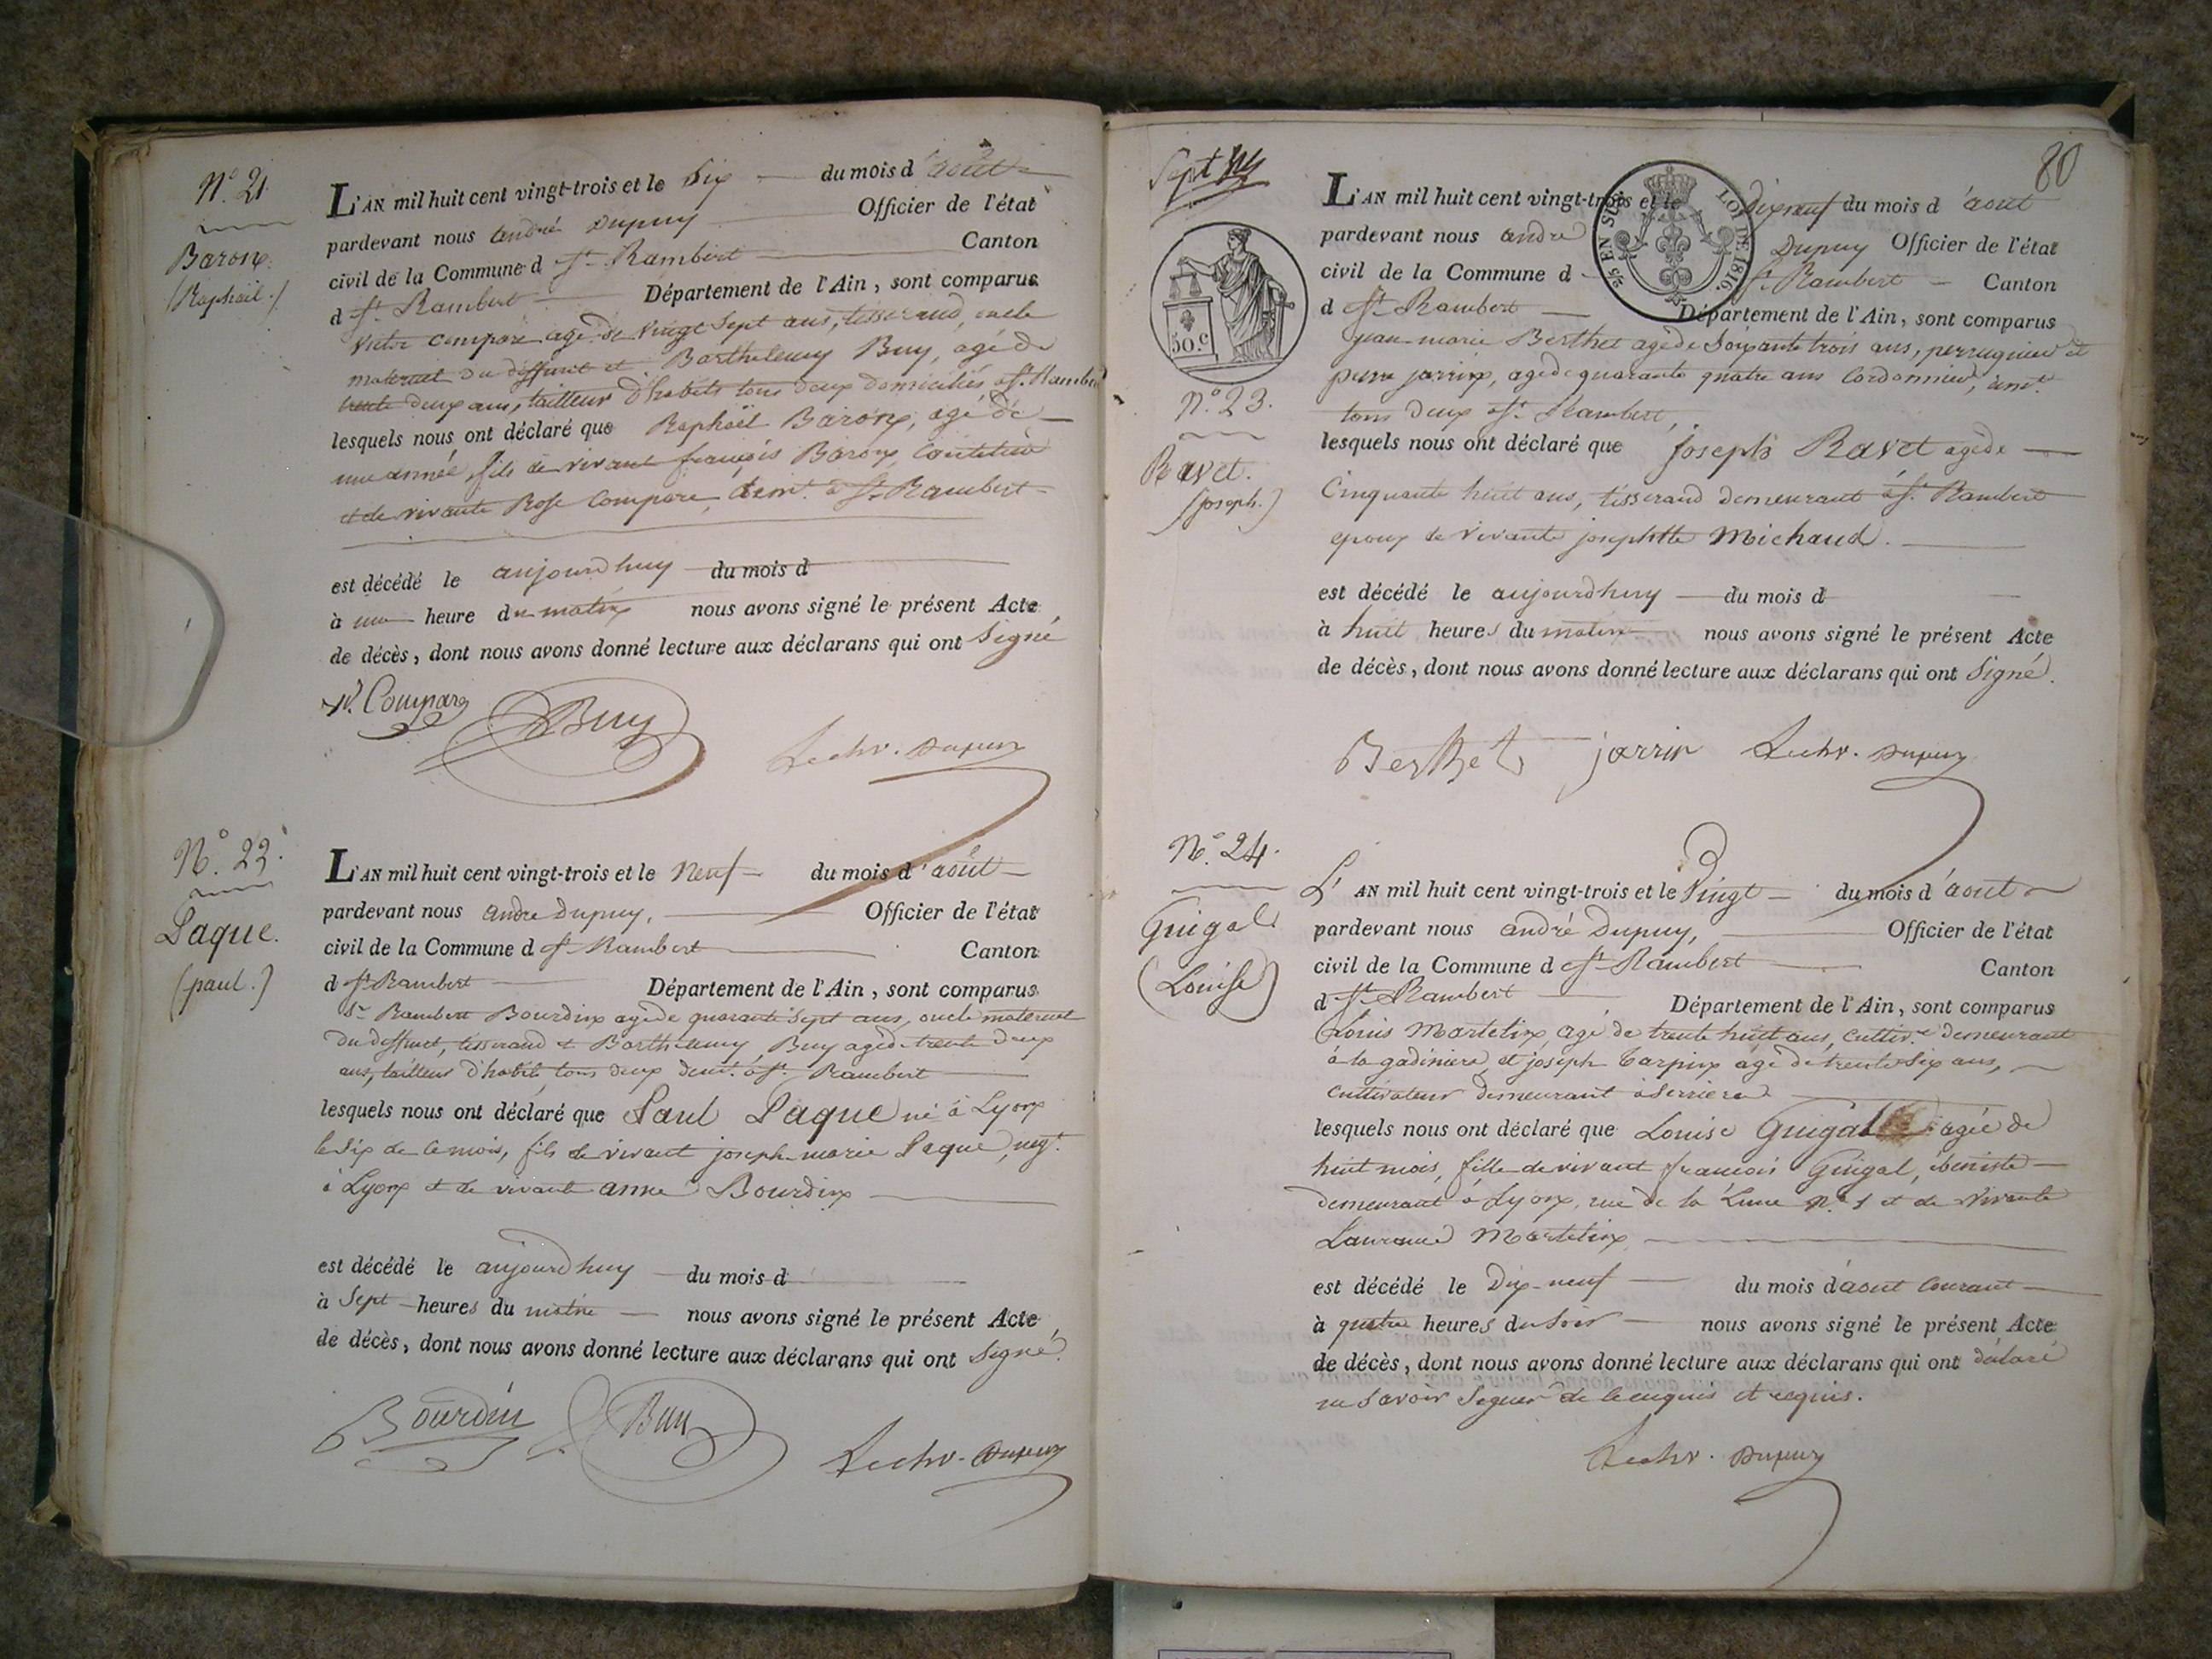 N.° 21
Baron
(Raphaël.)
L'AN mil huit cent vingt-trois et le Six du mois d'août
pardevant nous andré Dupuy Officier de l'état
civil de la Commune d St Rambert Canton
d St Rambert Département de l'Ain, sont comparus
Victor Compare agé de vingt Sept ans, tisserand, oncle
maternel du deffunt et Barthelemy Buy, agé de
trente deux ans, tailleur d'habits tous deux domiciliés à St. Rambert
lesquels nous ont déclaré que Raphaël Baron, agé de
une année, fils de vivant françois Baron,
et de vivante Rose Compare, demt. à St Rambert
est décédé le aujourdhuy du mois d
à une heure du matin nous avons signé le présent Acte
de décès, dont nous avons donné lecture aux déclarans qui ont Signé
V. Compare
Buy
Dupuy
N.° 22.
Paque.
(paul.)
L'AN mil huit cent vingt-trois et le Neuf du mois d'août
pardevant nous andre Dupuy, Officier de l'état
civil de la Commune d St Rambert Canton
d St Rambert Département de l'Ain, sont comparus
Sr Rambert Bourdin agé de quarante Sept ans, oncle maternel
du deffunt, tisserand et Barthelemy, Buy agé de trente deux
ans, tailleur d'habits tous deux demt. à St Rambert
lesquels nous ont déclaré que Paul Paque né à Lyon
le Six de ce mois, fils de vivant joseph marie Paque, negt.
à Lyon et de vivante anne Bourdin
est décédé le aujourdhuy du mois d
à Sept heures du matin nous avons signé le présent Acte
de décès, dont nous avons donné lecture aux déclarans qui ont Signé.
Bourdin
Buy
Dupuy
80
Sept
2/5 EN SUS
LOI DE 1816.
50.c
N.° 23.
Ravet.
(joseph.)
L'AN mil huit cent vingt-trois et le dixneuf du mois d'août
pardevant nous andré Dupuy Officier de l'état
civil de la Commune d St Rambert Canton
d St Rambert Département de l'Ain, sont comparus
jean-marie Berthet agé de Soixante trois ans, perruquier et
pierre jarrin, agé de quarante quatre ans Cordonnier, demt.
tous deux à St Rambert,
lesquels nous ont déclaré que joseph Ravet agé de
Cinquante huit ans, tisserand demeurant à St Rambert
epoux de vivante josephtte Michaud.
est décédé le aujourdhuy du mois d
à huit heures du matin nous avons signé le présent Acte
de décès, dont nous avons donné lecture aux déclarans qui ont Signé.
Berthet
jarrin
Dupuy
N.° 24.
Guigal
(Louise)
L'AN mil huit cent vingt-trois et le Vingt du mois d'août
pardevant nous andré Dupuy, Officier de l'état
civil de la Commune d St Rambert Canton
d St Rambert Département de l'Ain, sont comparus
Louis Martelin, agé de trente huit ans, cultivr. demeurant
à la gadiniere, et joseph Carpin agé de trente Six ans,
cultivateur demeurant à Serriere
lesquels nous ont déclaré que Louise Guigal agée de
huit mois, fille de vivant francois Guigal, ébeniste
demeurant à Lyon, rue de la Lune n.° 1 et de vivante
Laurance Martelin
est décédé le Dix-neuf du mois d'aout courant
à quatre heures du Soir nous avons signé le présent Acte
de décès, dont nous avons donné lecture aux déclarans qui ont déclaré
ne savoir Signer de ce enquis et requis.
Dupuy